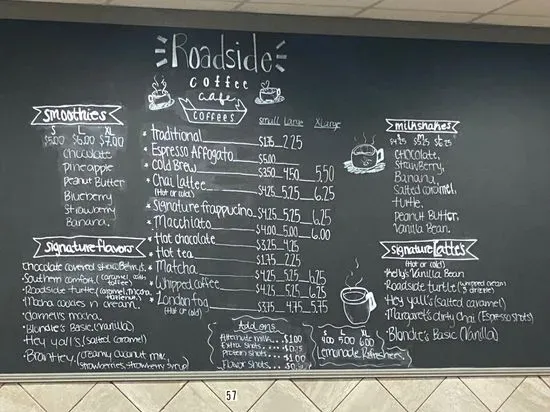 Roadside
Coffee
Cafe
COFFEES
Small Large XLarge
* Traditional $1.75 2.25
* Espresso Affogato $5.00
* Cold Brew $3.50 4.50 5.50
* Chai Latte $4.25 5.25 6.25
(Hot or cold)
* Signature frappucino $4.25 5.25 6.25
* Macchiato $4.00 5.00 6.00
* Hot chocolate $3.25 4.25
* Hot tea $1.75 2.25
* Matcha $4.25 5.25 6.25
* Whipped coffee $4.25 5.25 6.25
* London fog $3.75 4.75 5.75
(Hot or cold)
Smoothies
S L XL
$5.00 $6.00 $7.00
Chocolate
Pineapple
Peanut Butter
Blueberry
Strawberry
Banana
Signature flavors
Chocolate covered
Southern comfort (caramel,
toffee)
Roadside turtle (caramel, mocha,
hazelnut)
Mocha cookies n cream
Camerin's mocha
Blondie's Basic (vanilla)
Hey yall's (salted caramel)
Brantley (creamy coconut milk,
strawberries, strawberry syrup)
Add ons
Alternate milk... $1.00
Extra shots... $0.75
Protein shots... $1.00
Flavor shots...
S L XL
4.00 5.00 6.00
Lemonade Refreshers
Milkshakes
S M L
$4.25 $5.25 $6.25
Chocolate,
Strawberry,
Banana
Salted caramel,
Turtle,
Peanut Butter,
Vanilla Bean
Signature Lattes
(Hot or cold)
Kelly's Vanilla Bean
Roadside turtle (whipped cream
& drizzle)
Hey yall's (salted caramel)
Margaret's dirty chai (Espresso shots)
Blondie's Basic (Vanilla)
57